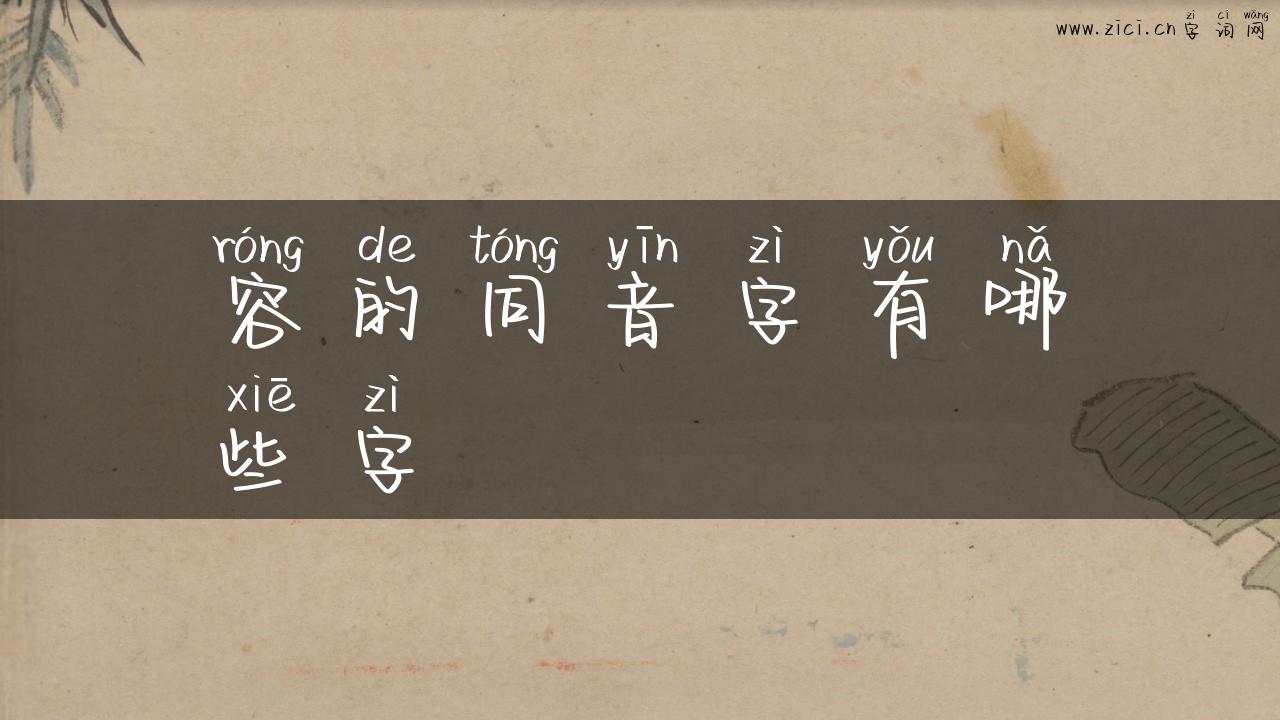 zì cí wǎng
www.zici.cn 字 词 网
róng de tóng yīn zì yǒu nǎ
容 的 同 音 字 有 哪
xiē zì
些 字